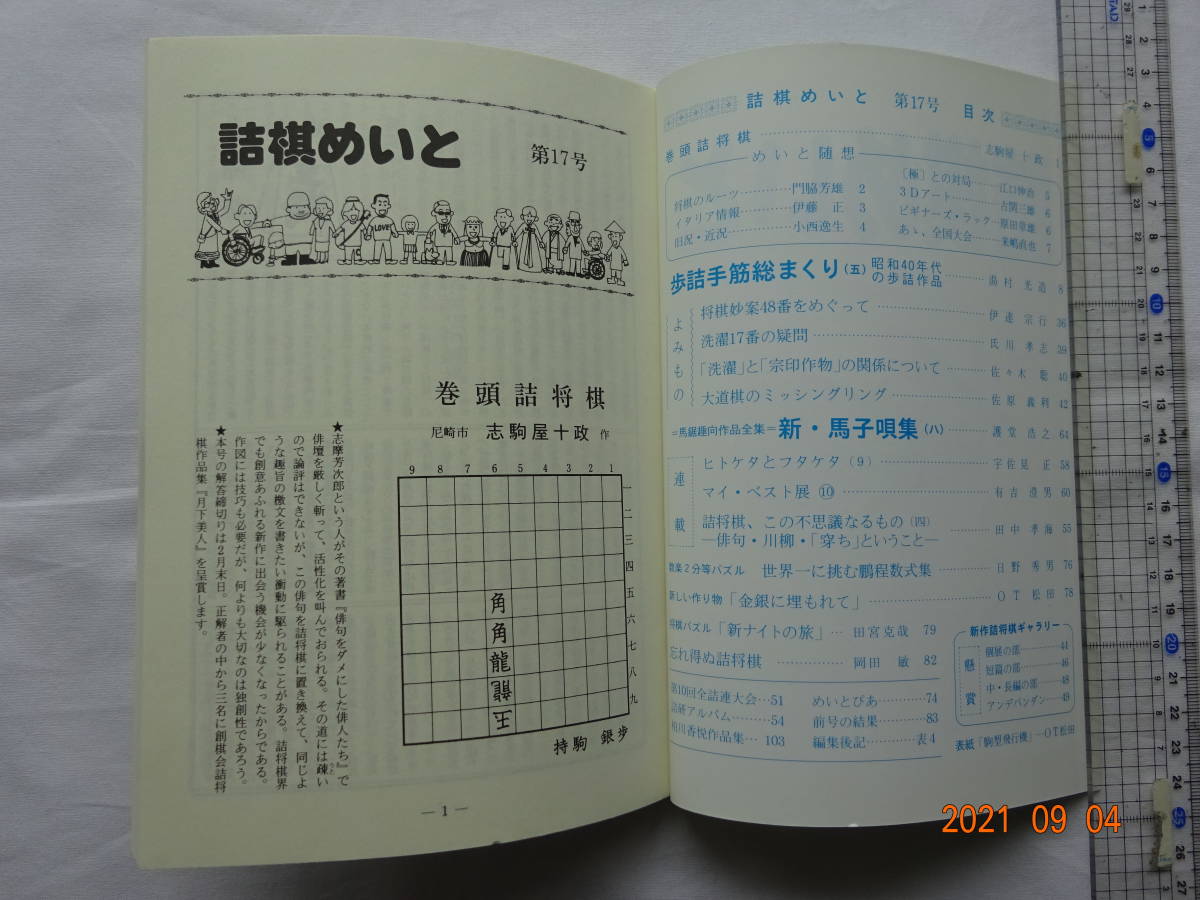 詰棋めいと
第17号
LOVE!
巻頭詰将棋
尼崎市 志駒屋十政 作
9 8 7 6 5 4 3 2 1
一
二
三
四
五
六
七
八
九
角
角
龍
龍
玉
持駒 銀歩
★志摩芳次郎という人がその著書『俳句をダメにした俳人たち』で
俳壇を厳しく斬って、活性化を叫んでおられる。その道には疎い
ので論評はできないが、この俳句を詰将棋に置き換えて、同じよ
うな趣旨の檄文を書きたい衝動に駆られることがある。詰将棋界
でも創意あふれる新作に出会う機会が少なくなったからである。
作図には技巧も必要だが、何よりも大切なのは独創性であろう。
★本号の解答締切りは2月末日。正解者の中から三名に創棋会詰将
棋作品集『月下美人』を呈賞します。
— 1 —
詰棋めいと 第17号 目次
巻頭詰将棋……志駒屋十政 1
めいと随想
将棋のルーツ…………門脇芳雄 2
イタリア情報…………伊藤 正 3
旧況・近況……………小西逸生 4
〔極〕との対局………江口伸治 5
3Dアート…………古関三雄 6
ビギナーズ・ラック…原田章雄 6
あゝ、全国大会………来嶋直也 7
歩詰手筋総まくり(五) 昭和40年代の歩詰作品……湯村光造 8
よみもの
将棋妙案48番をめぐって……伊達宗行 36
洗濯17番の疑問……氏川孝志 39
「洗濯」と「宗印作物」の関係について……佐々木 聡 40
大道棋のミッシングリング……佐原義利 42
=馬鋸趣向作品全集= 新・馬子唄集(八)……護堂浩之 64
連載
ヒトケタとフタケタ(9)……宇佐見 正 58
マイ・ベスト展⑩……有吉澄男 60
詰将棋、この不思議なるもの(四)
—俳句・川柳・「穿ち」ということ—……田中孝海 55
数楽2分等パズル 世界一に挑む鵬程数式集……日野秀男 76
新しい作り物 「金銀に埋もれて」……OT松田 78
将棋パズル「新ナイトの旅」…田宮克哉 79
忘れ得ぬ詰将棋……岡田 敏 82
第10回全詰連大会…51
詰研アルバム………54
柏川香悦作品集…103
めいとぴあ………74
前号の結果………83
編集後記………表4
新作詰将棋ギャラリー
懸賞
個展の部……44
短篇の部……46
中・長編の部……48
アンデパンダン……49
表紙「駒型飛行機」…OT松田
2021 09 04